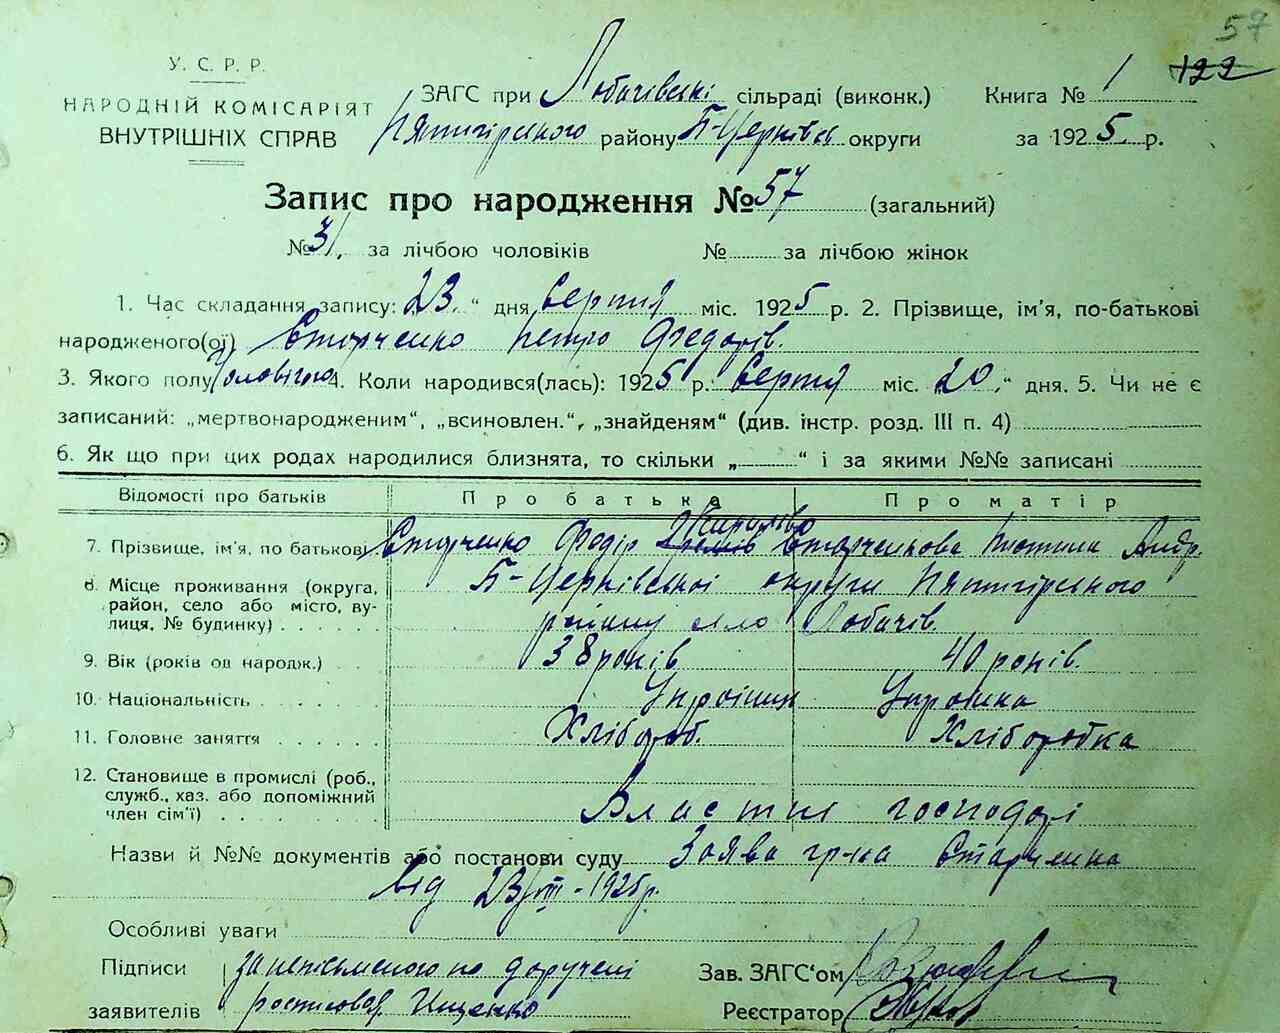 57
У. С. Р. Р.
НАРОДНІЙ КОМІСАРІЯТ
ВНУТРІШНІХ СПРАВ
ЗАГС при Лобачівські сільраді (виконк.) Книга № 1 122
Пятигірського району Б-Церківсь округи за 1925 р.
Запис про народження № 57 (загальний)
№ 31, за лічбою чоловіків № за лічбою жінок
1. Час складання запису: 23 “ дня Серпня міс. 1925 р. 2. Прізвище, ім'я, по-батькові
народженого(ої) Сторченко Петро Федорів.
3. Якого полу Чоловічого 4. Коли народився(лась): 1925 р. Серпня міс. „20“ дня. 5. Чи не є
записаний: „мертвонародженим“, „всиновлен.“, „знайденям“ (див. інстр. розд. III п. 4)
6. Як що при цих родах народилися близнята, то скільки „ “ і за якими №№ записані
Відомості про батьків Про батька Про матір
7. Прізвище, ім'я, по батькові Сторченко Федір Сторченкова Андр.
8. Місце проживання (округа, район, село або місто, вулиця, № будинку) Б-Церківської округи Пятигірського
району село Лобачів.
9. Вік (років од народж.) 38 років 40 років.
10. Національність Украінец Украінка
11. Головне заняття Хлібороб. Хліборобка
12. Становище в промислі (роб., служб., хаз. або допоміжний член сім'ї) господарі
Назви й №№ документів або постанови суду Заява гр-на Сторченка
від 23/VIII-1925р.
Особливі уваги
Підписи заявителів за неписьменого по доручені
Іщенко
Зав. ЗАГС'ом
Реєстратор